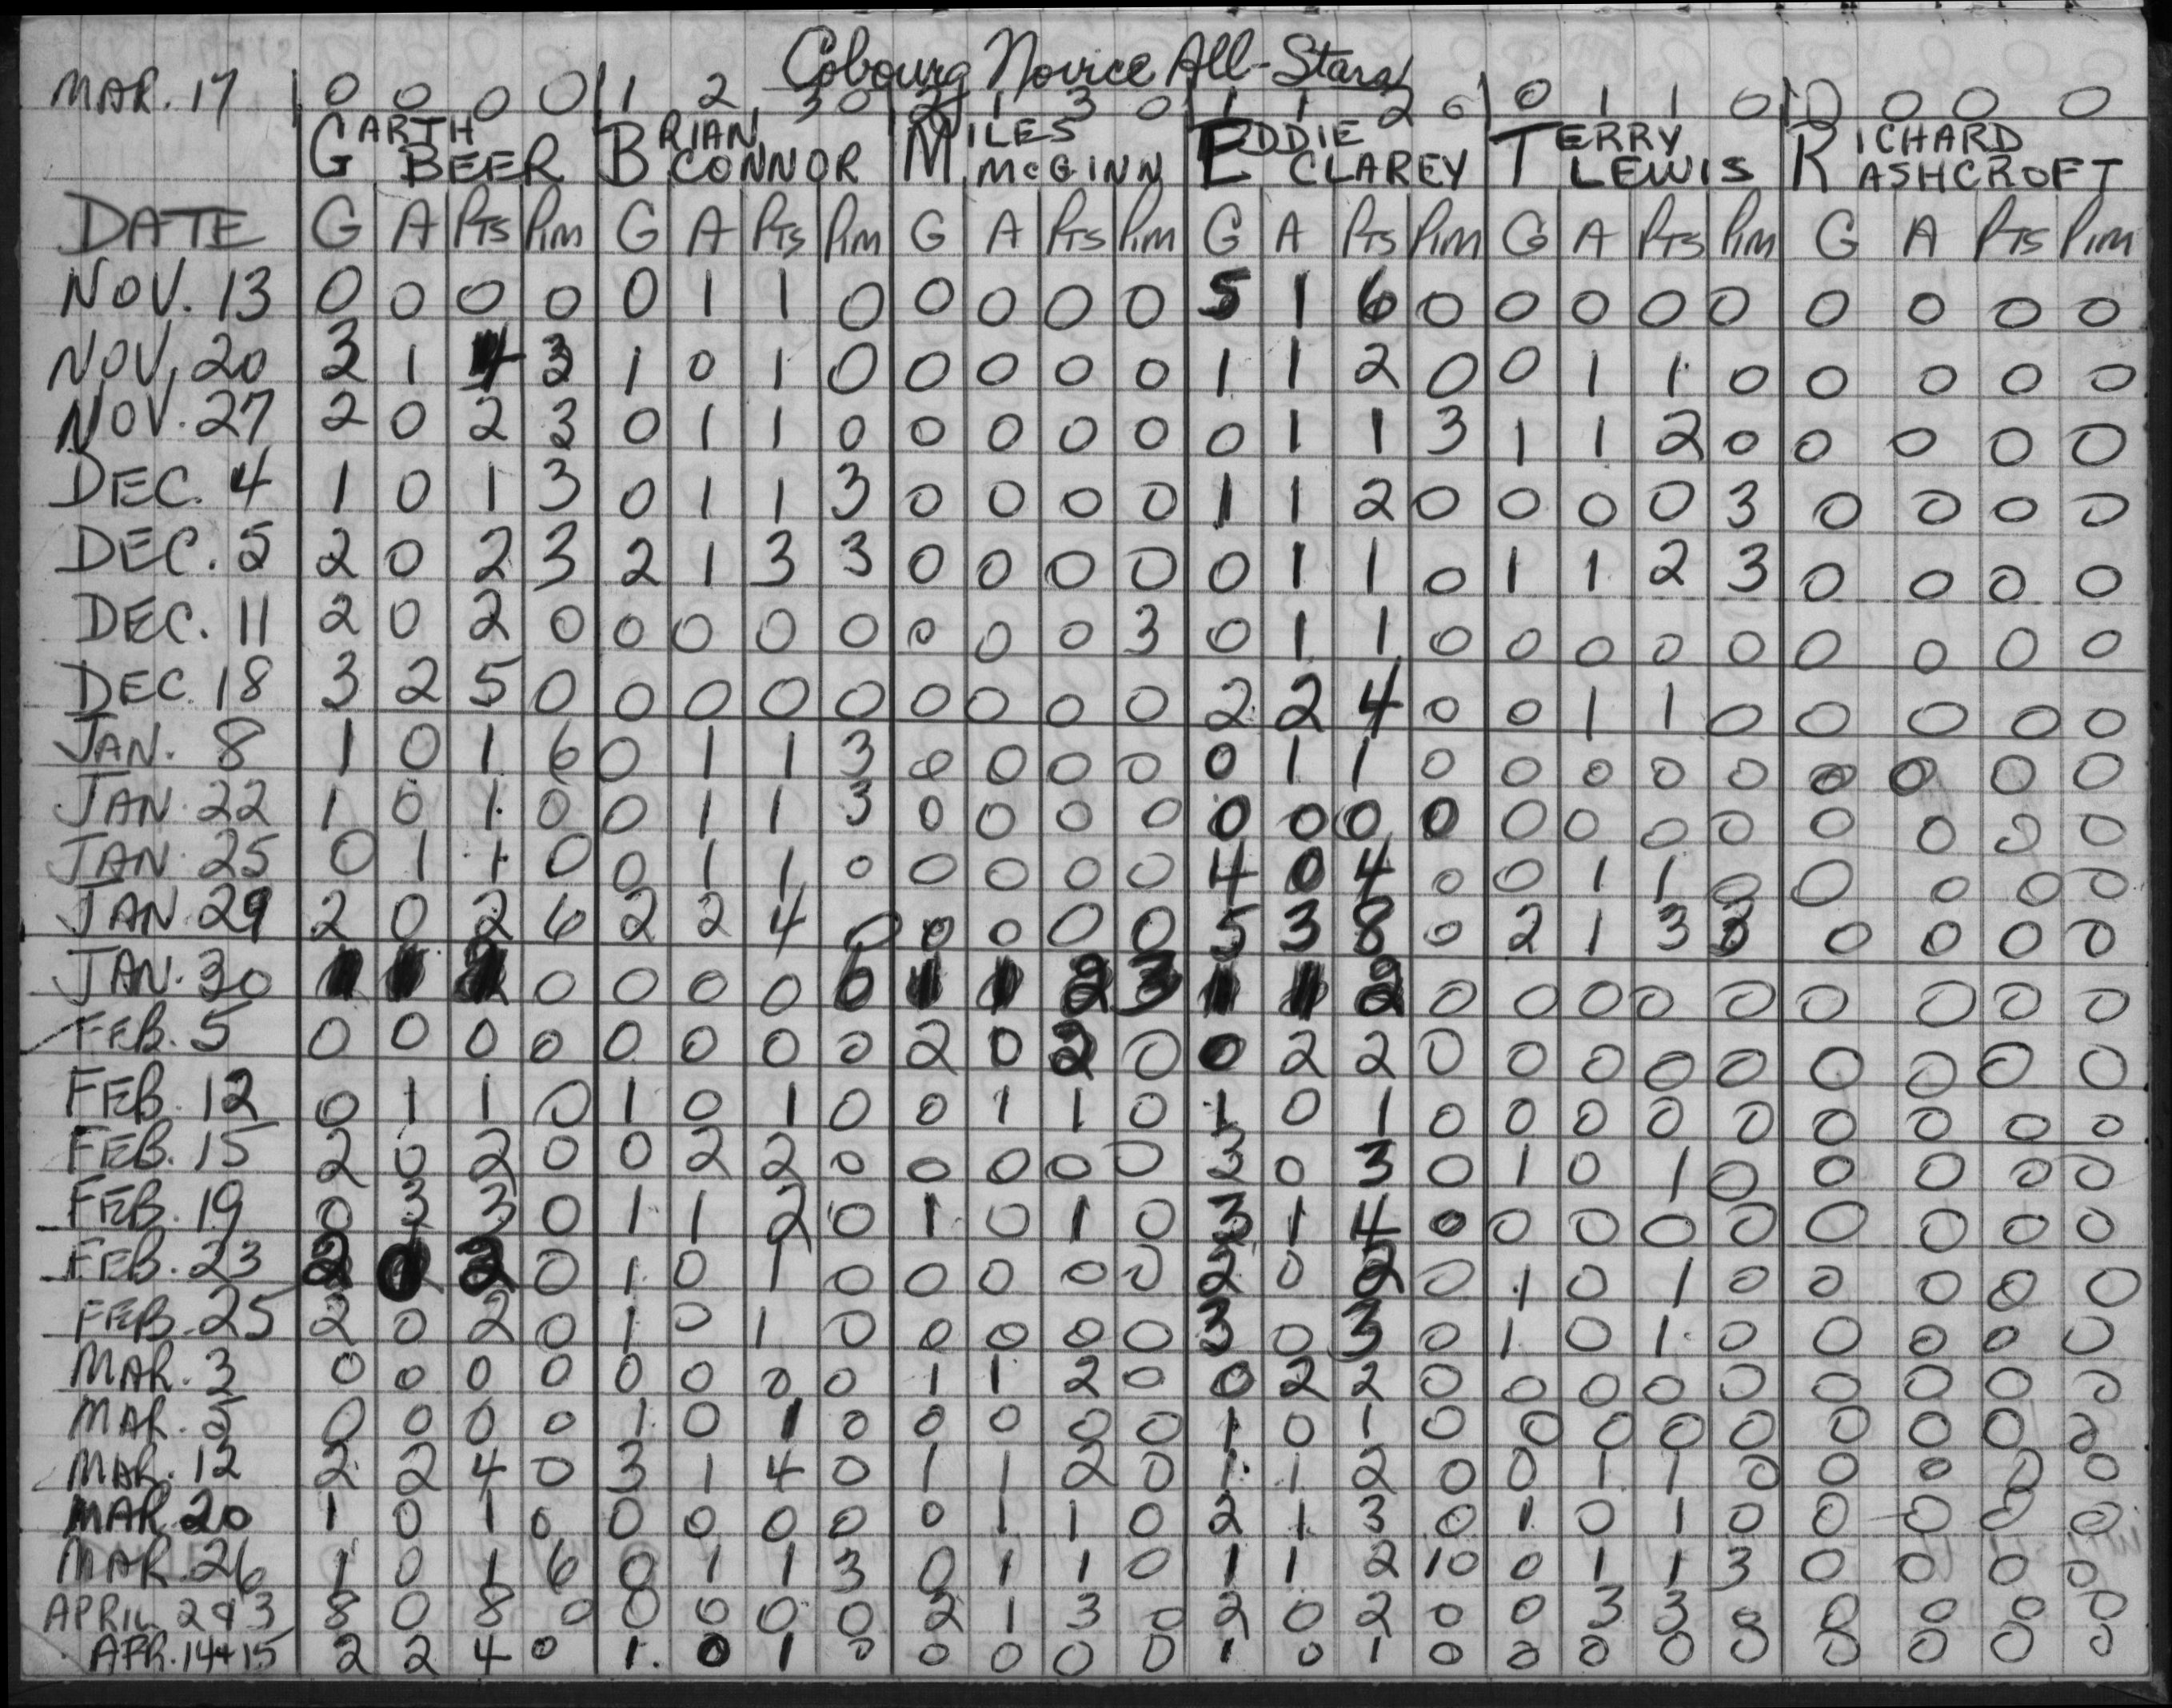 Cobourg Novice All-Stars
MAR. 17 0 0 0 0 1 2 3 0 2 1 3 0 1 1 2 0 0 1 1 0 0 0 0 0
GARTH BEER BRIAN CONNOR MILES McGINN EDDIE CLAREY TERRY LEWIS RICHARD ASHCROFT
DATE G A PTS PIM G A PTS PIM G A PTS PIM G A PTS PIM G A PTS PIM G A PTS PIM
NOV. 13 0 0 0 0 0 1 1 0 0 0 0 0 5 1 6 0 0 0 0 0 0 0 0 0
NOV. 20 3 1 4 3 1 0 1 0 0 0 0 0 1 1 2 0 0 1 1 0 0 0 0 0
NOV. 27 2 0 2 3 0 1 1 0 0 0 0 0 0 1 1 3 1 1 2 0 0 0 0 0
DEC. 4 1 0 1 3 0 1 1 3 0 0 0 0 1 1 2 0 0 0 0 3 0 0 0 0
DEC. 5 2 0 2 3 2 1 3 3 0 0 0 0 0 1 1 0 1 1 2 3 0 0 0 0
DEC. 11 2 0 2 0 0 0 0 0 0 0 0 3 0 1 1 0 0 0 0 0 0 0 0 0
DEC. 18 3 2 5 0 0 0 0 0 0 0 0 0 2 2 4 0 0 1 1 0 0 0 0 0
JAN. 8 1 0 1 6 0 1 1 3 0 0 0 0 0 1 1 0 0 0 0 0 0 0 0 0
JAN. 22 1 0 1 0 0 1 1 3 0 0 0 0 0 0 0 0 0 0 0 0 0 0 0 0
JAN. 25 0 1 1 0 0 1 1 0 0 0 0 0 4 0 4 0 0 1 1 0 0 0 0 0
JAN. 29 2 0 2 6 2 2 4 0 0 0 0 0 5 3 8 0 2 1 3 3 0 0 0 0
JAN. 30 1 1 2 0 0 0 0 0 1 1 2 3 1 1 2 0 0 0 0 0 0 0 0 0
FEB. 5 0 0 0 0 0 0 0 0 2 0 2 0 0 2 2 0 0 0 0 0 0 0 0 0
FEB. 12 0 1 1 0 1 0 1 0 0 1 1 0 1 0 1 0 0 0 0 0 0 0 0 0
FEB. 15 2 0 2 0 0 2 2 0 0 0 0 0 3 0 3 0 1 0 1 0 0 0 0 0
FEB. 19 0 3 3 0 1 1 2 0 1 0 1 0 3 1 4 0 0 0 0 0 0 0 0 0
FEB. 23 2 1 3 0 1 0 1 0 0 0 0 0 2 0 2 0 1 0 1 0 0 0 0 0
FEB. 25 2 0 2 0 1 0 1 0 0 0 0 0 3 0 3 0 1 0 1 0 0 0 0 0
MAR. 3 0 0 0 0 0 0 0 0 1 1 2 0 0 2 2 0 0 0 0 0 0 0 0 0
MAR. 5 0 0 0 0 1 0 1 0 0 0 0 0 1 0 1 0 0 0 0 0 0 0 0 0
MAR. 12 2 2 4 0 3 1 4 0 1 1 2 0 1 1 2 0 0 1 1 0 0 0 0 0
MAR. 20 1 0 1 0 0 0 0 0 0 1 1 0 2 1 3 0 1 0 1 0 0 0 0 0
MAR. 26 1 0 1 6 0 1 1 3 0 1 1 0 1 1 2 10 0 1 1 3 0 0 0 0
APRIL 2+3 8 0 8 0 0 0 0 0 2 1 3 0 2 0 2 0 0 3 3 0 0 0 0 0
APR. 14+15 2 2 4 0 1 0 1 0 0 0 0 0 1 0 1 0 0 0 0 0 0 0 0 0